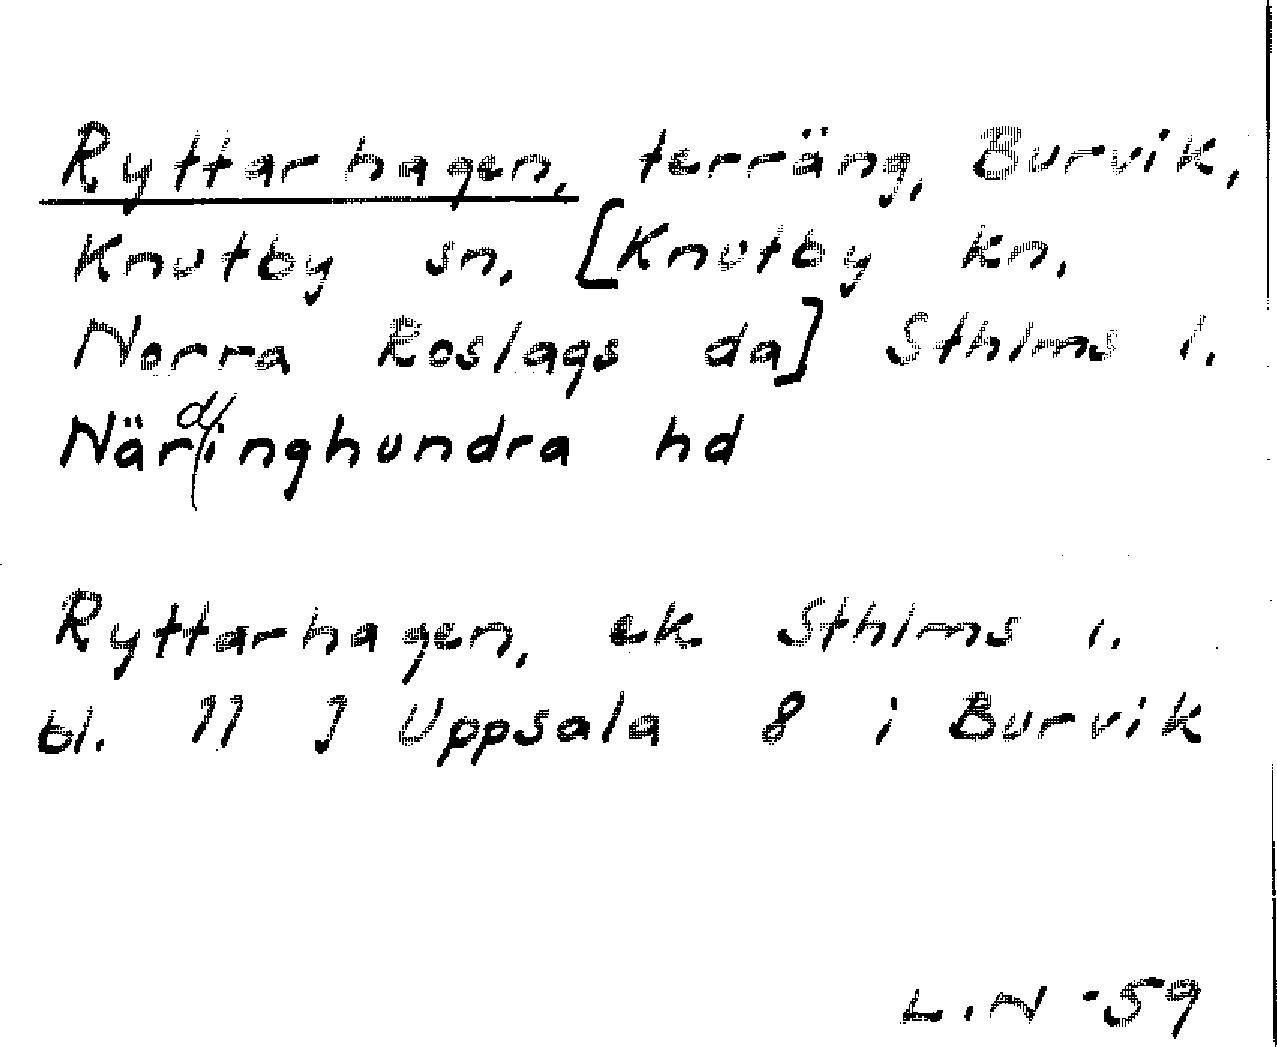 Ryttarhagen, terräng, Burvik,
Knutby sn, [Knutby kn,
Norra Roslags da] Sthlms l.
Närdinghundra hd
Ryttarhagen, ek Sthlms l.
bl. 11 I Uppsala 8 i Burvik
L.N -59